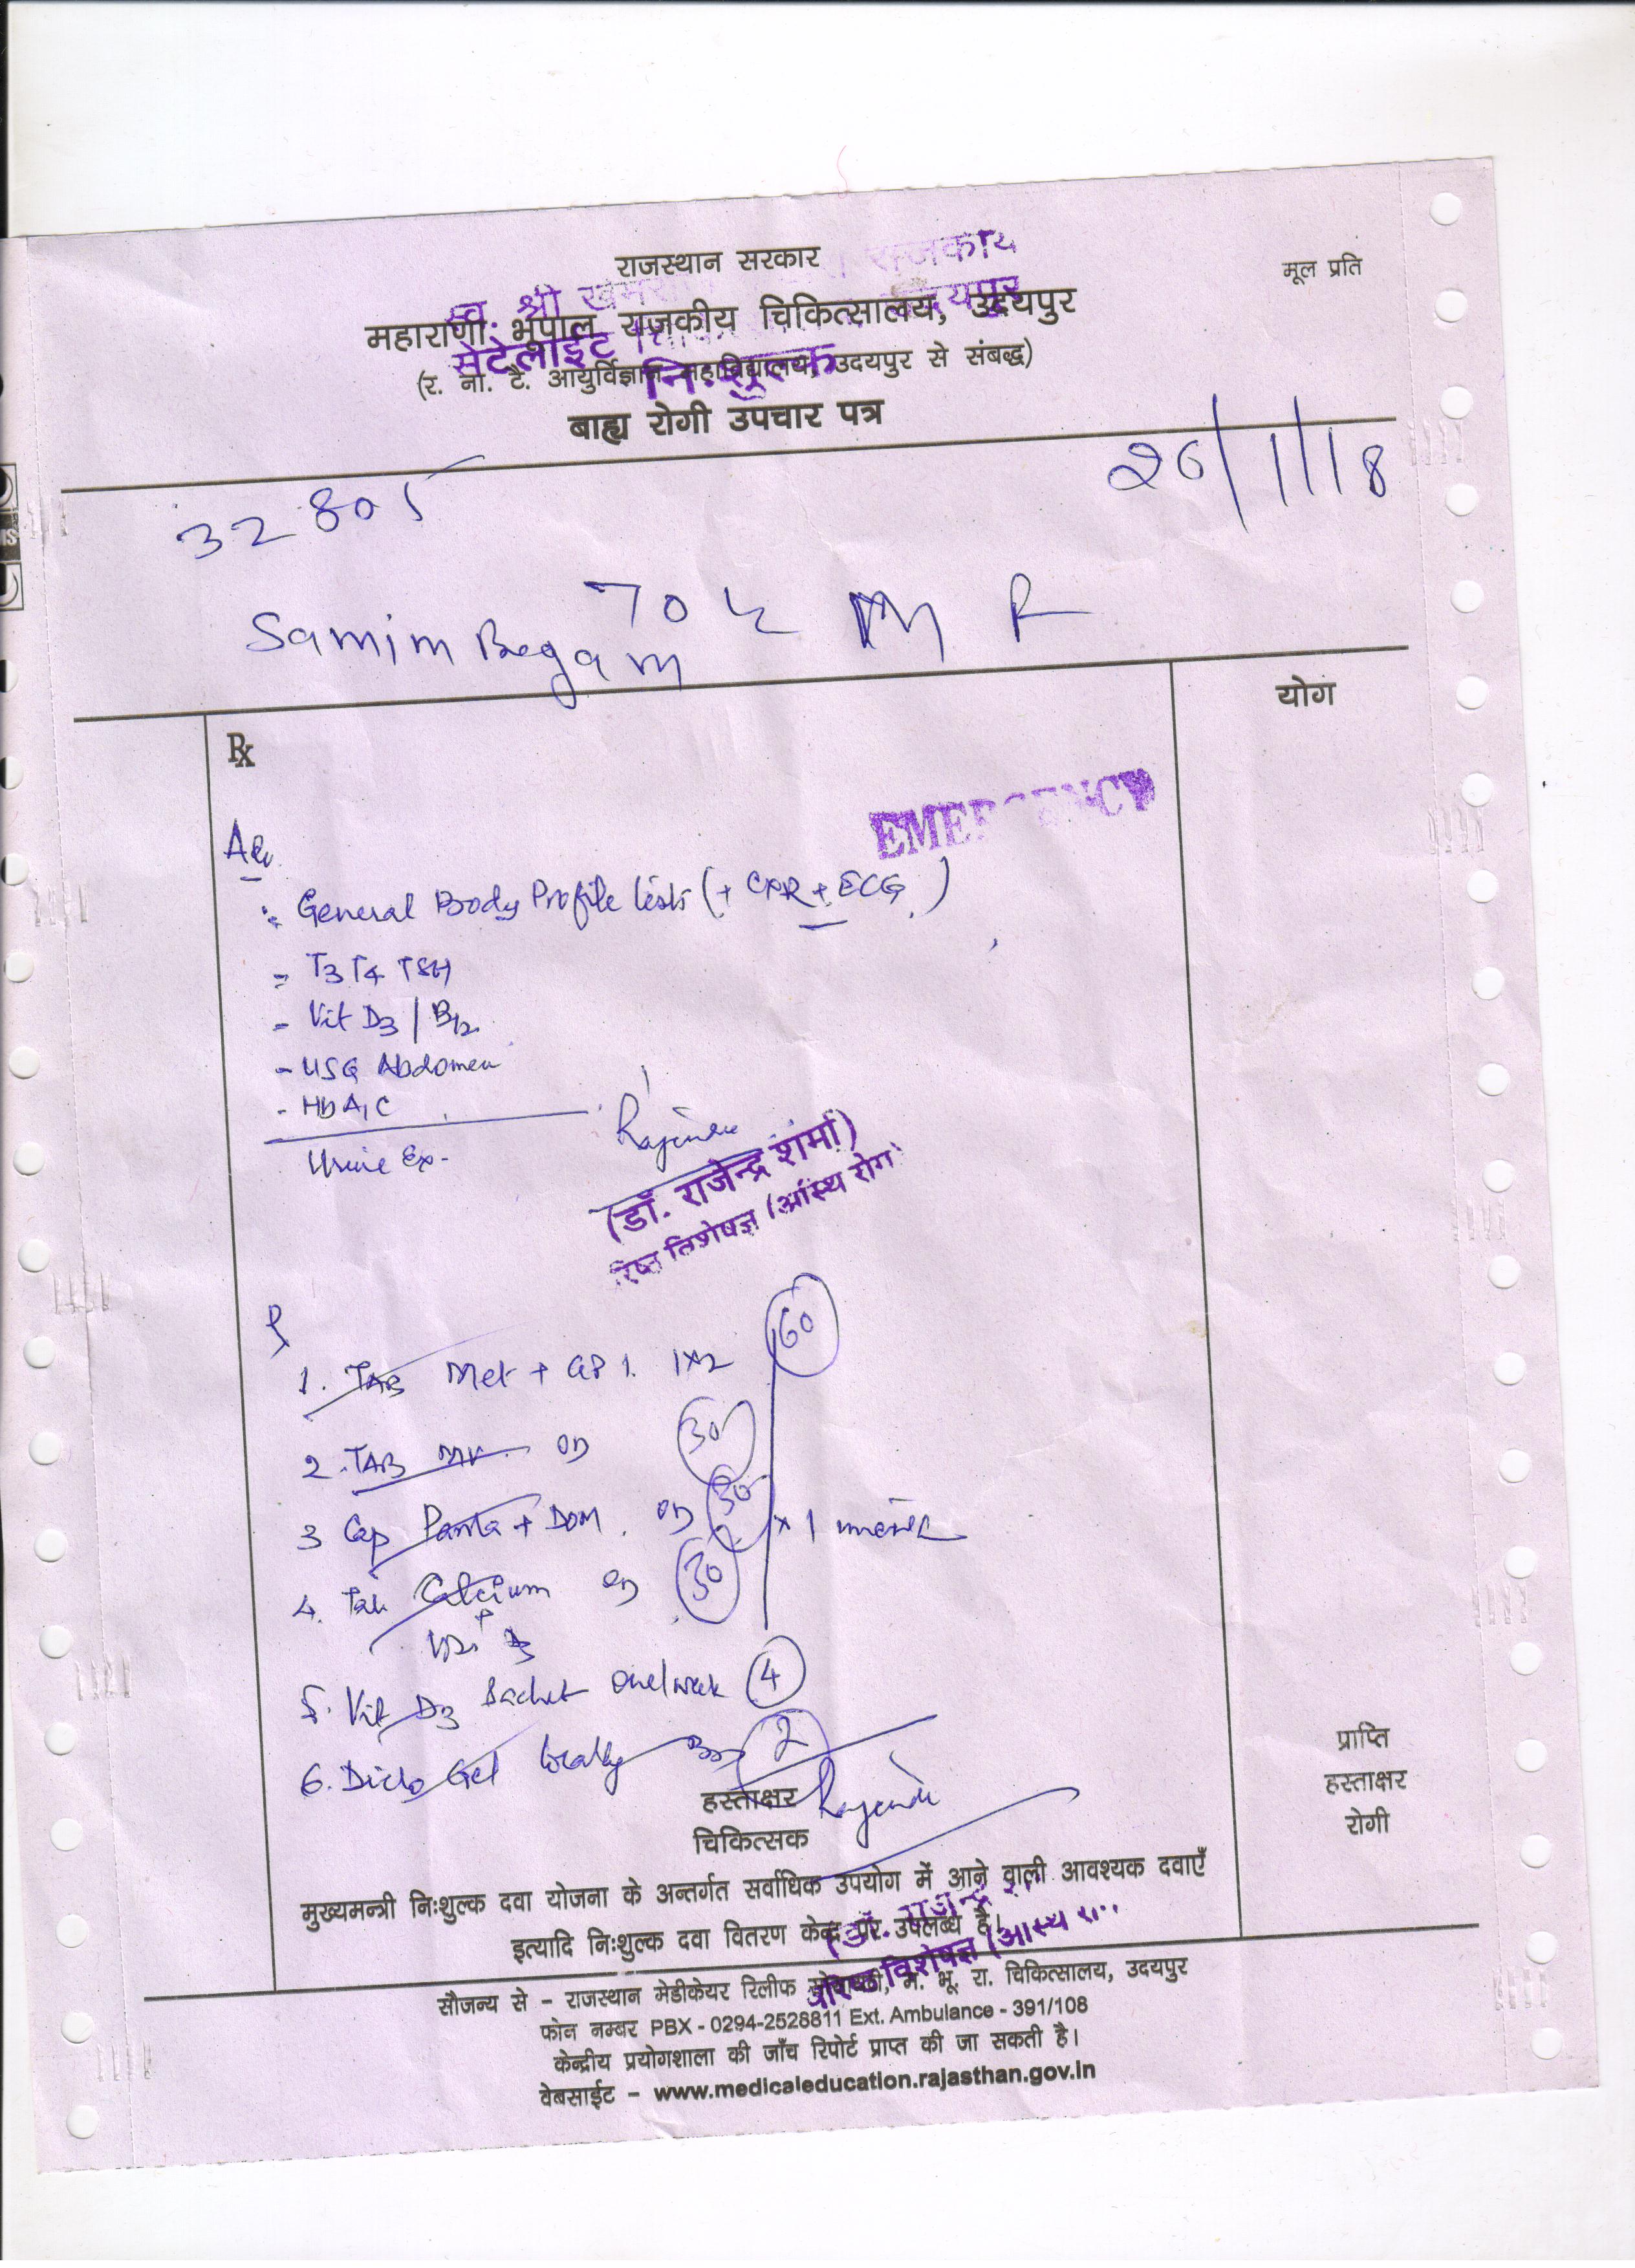 राजस्थान सरकार
मूल प्रति
स्व. श्री राजकीय
महाराणा भूपाल राजकीय चिकित्सालय, उदयपुर
सेटेलाईट उदयपुर
(र. ना. टै. आयुर्विज्ञान महाविद्यालय, उदयपुर से संबद्ध)
निःशुल्क
बाह्य रोगी उपचार पत्र
32805
26/1/18
Samim Begam 70 M F
योग
Rx
EMERGENCY
Adv.
General Body Profile tests (+ CXR + ECG)
- T3 T4 TSH
- Vit D3 / B12
- USG Abdomen
- HbA1C
Urine Ex.
(डॉ. राजेन्द्र शर्मा)
विशेषज्ञ (अस्थि रोग)
1. TAB Met + GP1. 1x2 60
2. TAB MV OD 30
3 Cap Panta + DOM. OD 30 x 1 month
4. Tab Calcium OD 30
+
Vit D3
5. Vit D3 Sachet one/week 4
6. Diclo Gel locally 2
हस्ताक्षर
चिकित्सक
प्राप्ति
हस्ताक्षर
रोगी
मुख्यमन्त्री निःशुल्क दवा योजना के अन्तर्गत सर्वाधिक उपयोग में आने वाली आवश्यक दवाएँ
इत्यादि निःशुल्क दवा वितरण केन्द्र पर उपलब्ध है।
विशेषज्ञ
सौजन्य से – राजस्थान मेडीकेयर रिलीफ सोसायटी, म. भू. रा. चिकित्सालय, उदयपुर
फोन नम्बर PBX - 0294-2528811 Ext. Ambulance - 391/108
केन्द्रीय प्रयोगशाला की जाँच रिपोर्ट प्राप्त की जा सकती है।
वेबसाईट – www.medicaleducation.rajasthan.gov.in